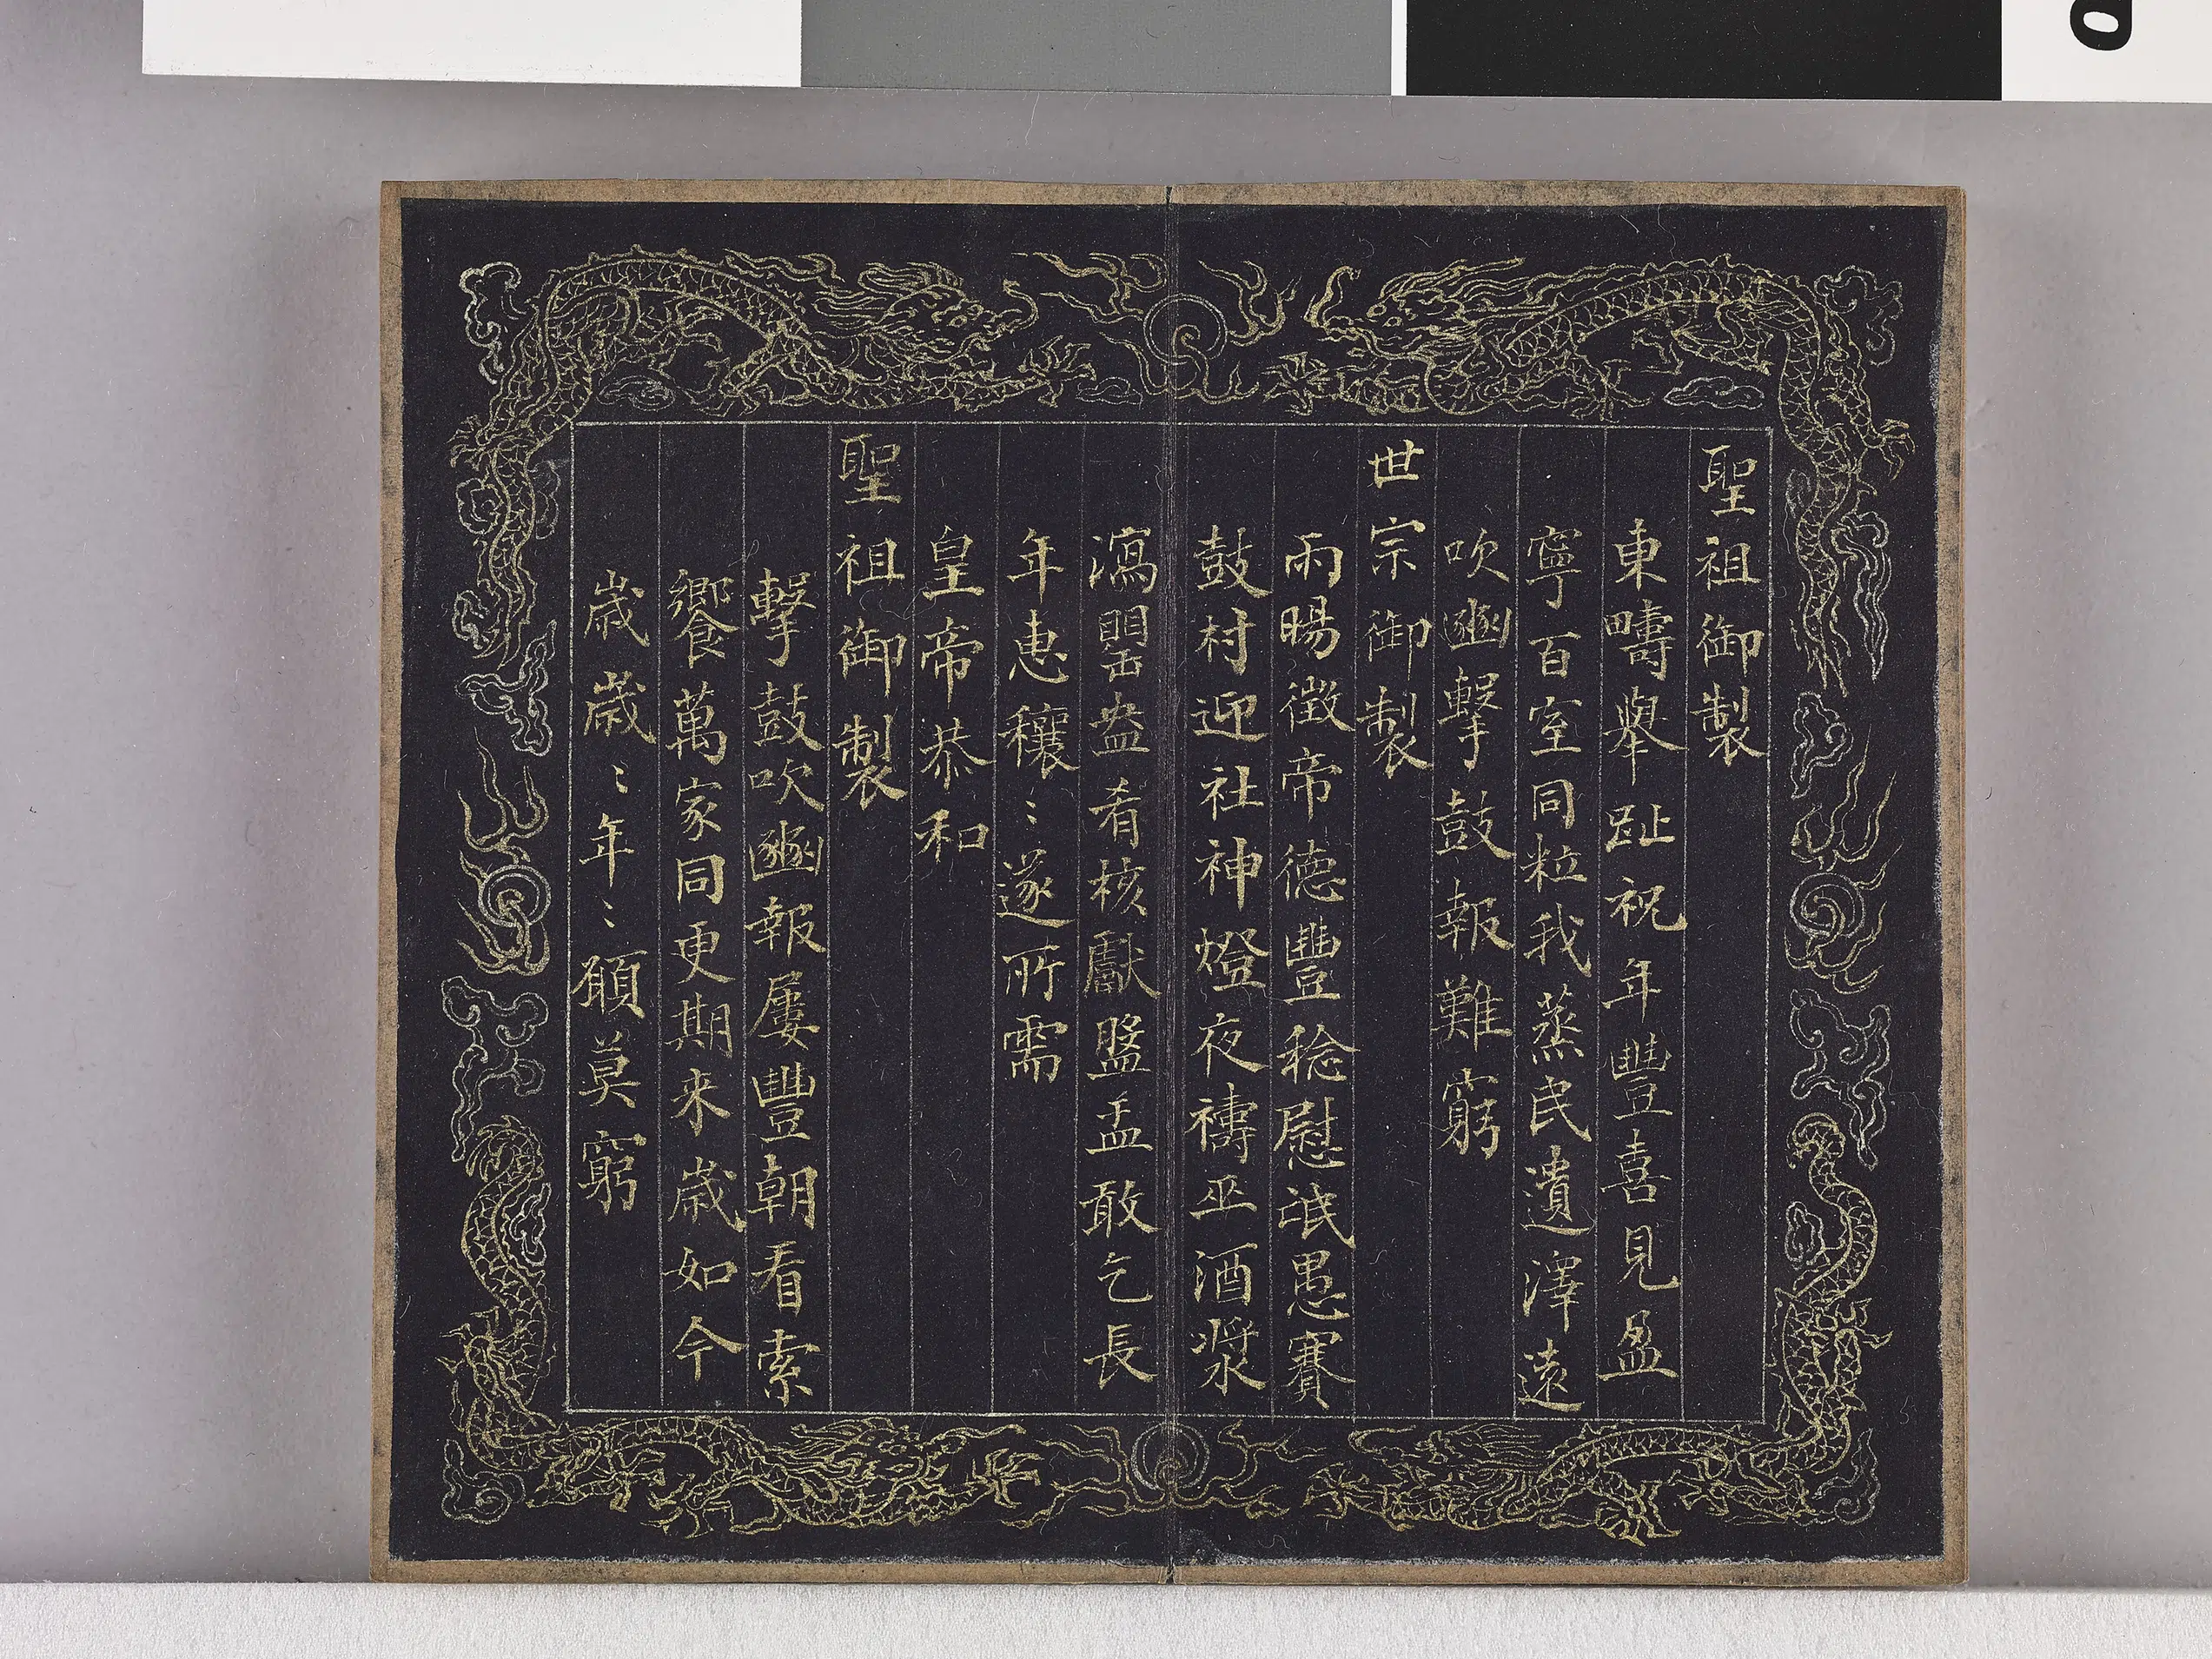 聖祖御製
東疇舉趾祝年豐喜見盈
寧百室同粒我蒸民遺澤遠
吹豳擊鼓報難窮
世宗御製
雨暘徵帝德豐稔慰氓愚賽
鼓村迎社神燈夜禱巫酒漿
瀉罌盎肴核獻盤盂敢乞長
年惠穰〻遂所需
皇帝恭和
聖祖御製
擊鼓吹豳報屢豐朝看索
饗萬家同更期来歲如今
歲歲〻年〻願莫窮